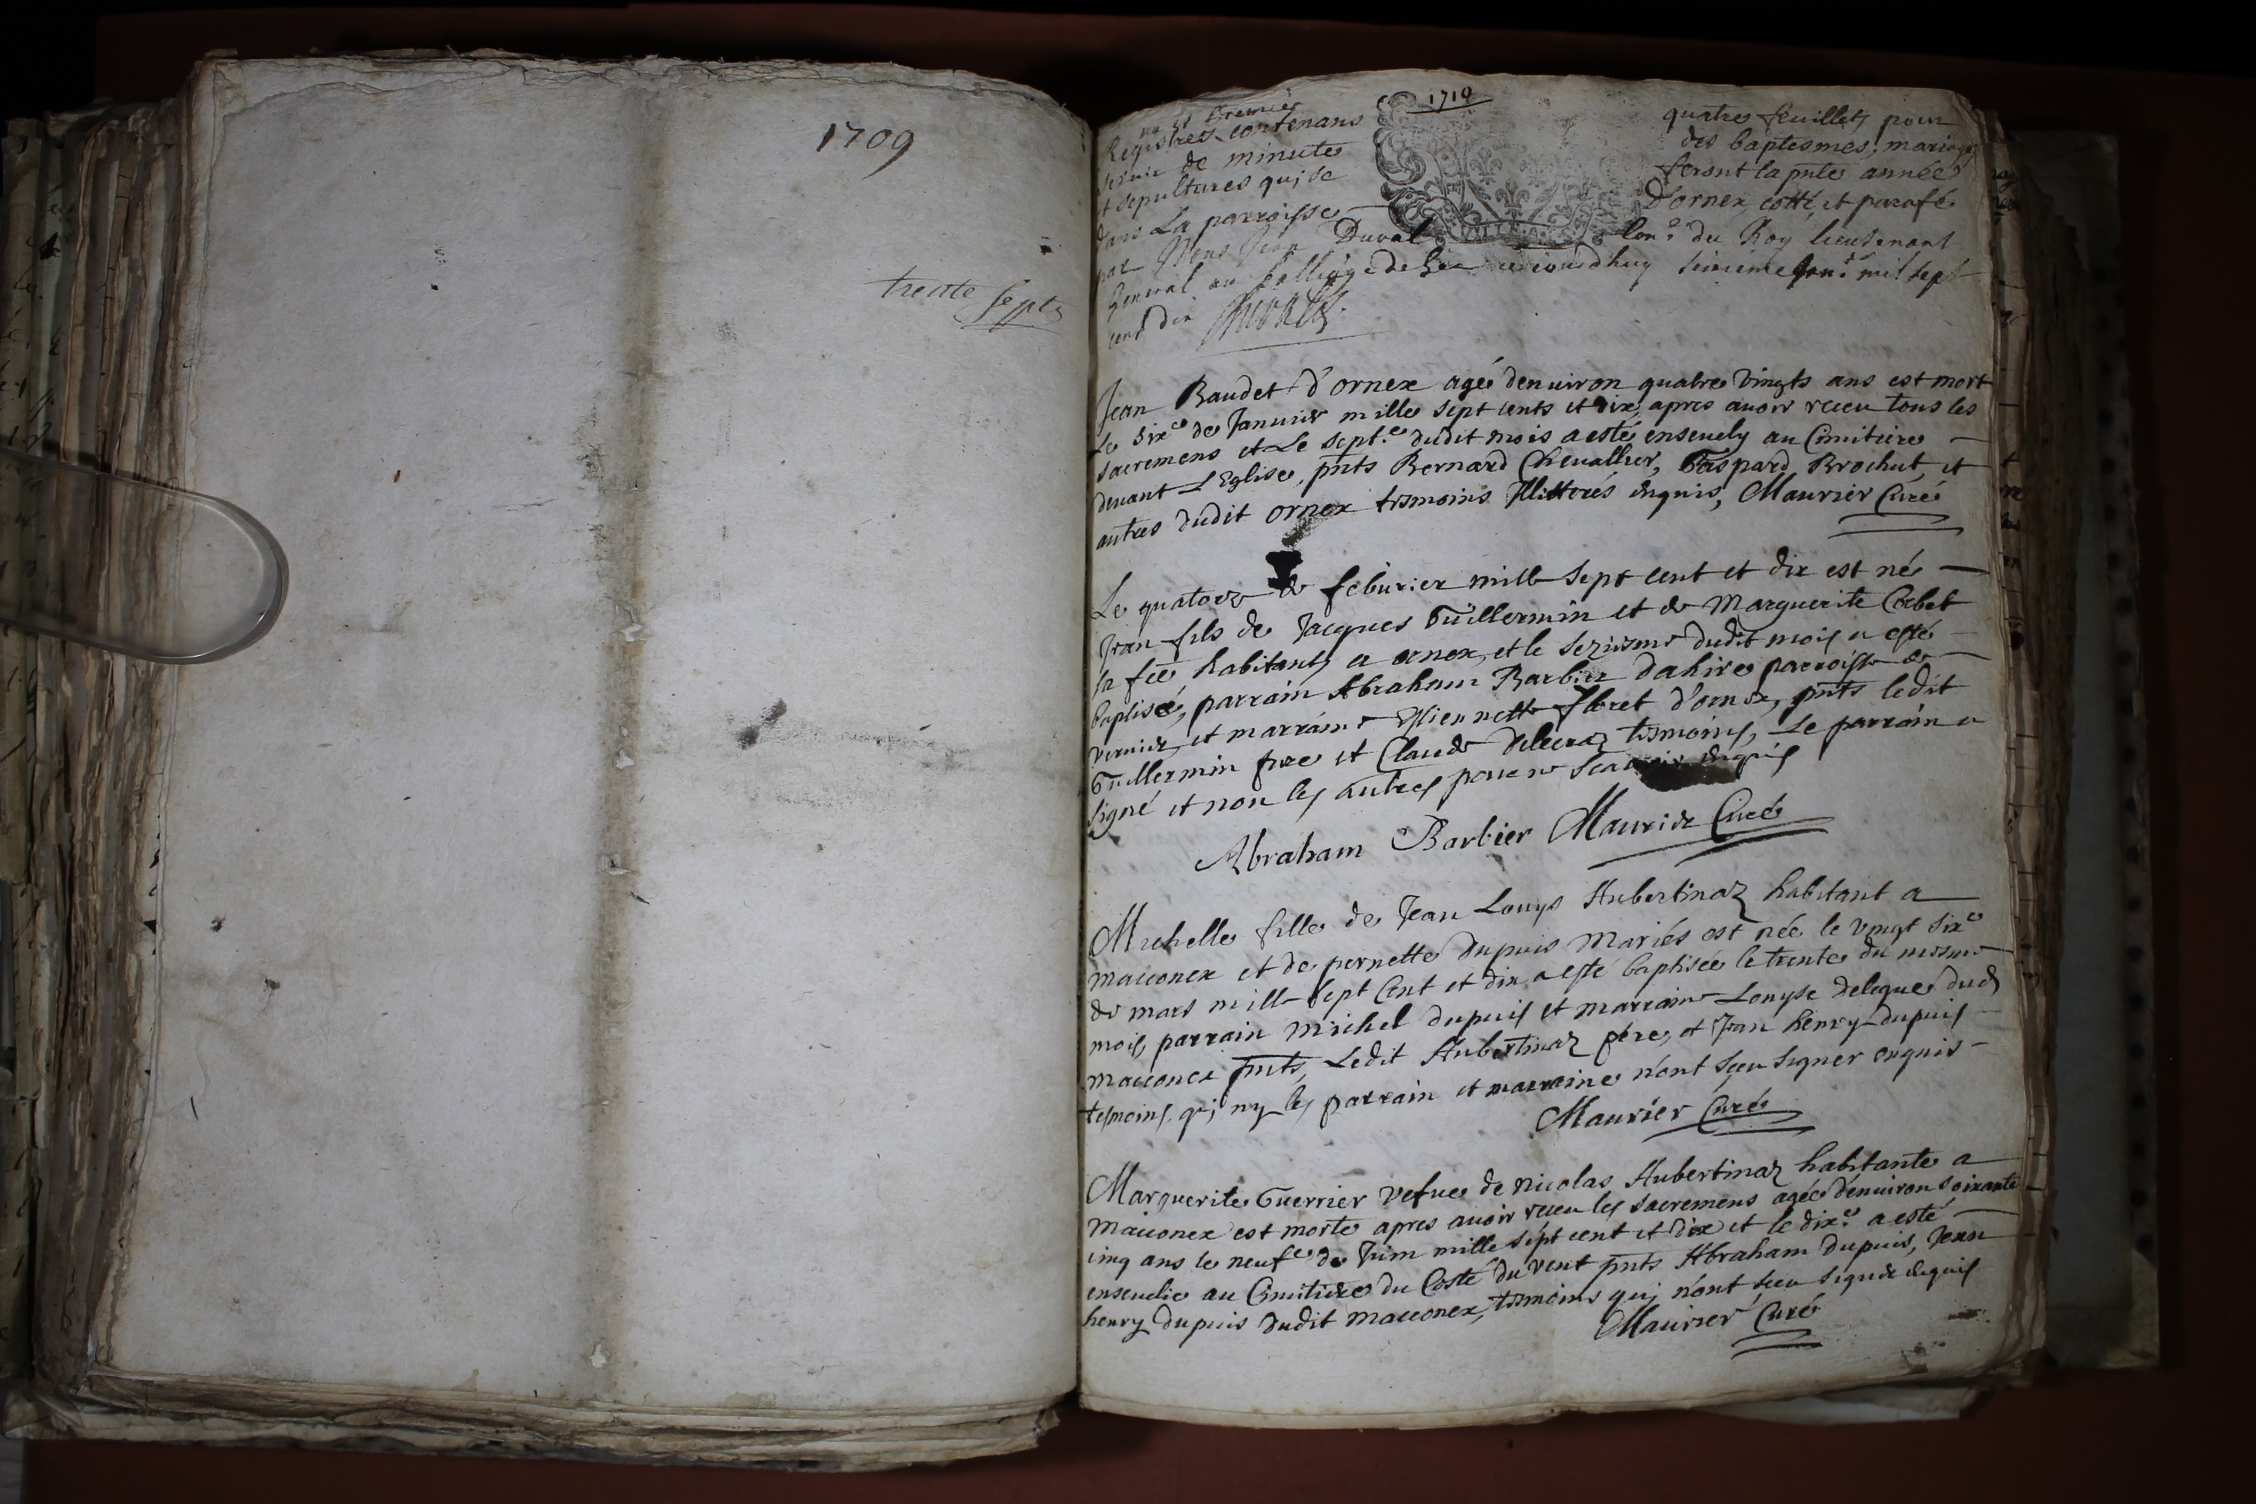 1709
trente sept
1710
Registres contenans quatre feuillets pour
servir de minutte des baptesmes, mariages
et sepultures qui se feront la pnte année
dans La parroisse D'ornex, cotté et parafé
par Nous Jean Duval Conr du Roy lieutenant
general au balliage de Gex ce jourdhuy mil sept
cent dix
Jean Baudet d'ornex agé denuiron quatre vingts ans est mort
Le sixe de Januier mille sept cents et dix, apres auoir receu tous les
sacremens et Le septe dudit mois a esté enseuely au Cimitiere
deuant L'Eglise, pnts Bernard Cheuallier, Gaspard Brochut, et
autres dudit ornex tesmoins Illitterés enquis, Maurier Curé
Le quatorze de feburier mille sept cent et dix est né
Jean fils de Jacques Guillermin et de Marguerite Corbet
sa fee habitants a ornex, et le seziesme dudit mois a esté
baptisé, parrain Abraham Barbier dahire parroisse de
vernier, et marraine Estiennette floret d'ornex, pnts ledit
Guillermin pere et Claude delecraz tesmoins, Le parrain a
signé et non les autres pour ne scauoir enquis
Abraham Barbier Maurier Curé
Michelle fille de Jean Louys Hubertinaz habitant a
maconex et de pernette Dupuis Mariés est née le vingt sixe
de mars mille sept Cent et dix a esté baptisée le trente du mesme
mois, parrain Michel dupuis et marraine Louyse deleque dud
maconex pnts, Ledit Hubertinaz pere, et Jean henry dupuis
tesmoins qui ny les parrain et marraine n'ont sceu signer enquis
Maurier Curé
Marguerite Guerrier vefue de Nicolas Hubertinaz habitante a
Maconex est morte apres auoir receu les sacremens agée d'enuiron soixante
cinq ans le neufe de Juin mille sept cent et dix et le dixe a esté
enseuelie au Cimitiere du Costé du vent pnts Abraham dupuis, Jean
henry dupuis dudit maconex, tesmoins qui n'ont sceu signer enquis
Maurier Curé